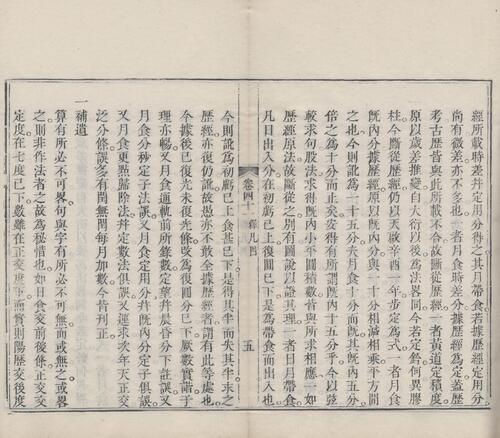 經所載時差幷定用分得之共月帶食若據歷經定用分
尚有微差亦不多也一者月食時差分據歷經爲定蓋歷
考古歷皆與此所載不合故斷從歷經一者黃道定積度
原以歲差推變自大衍以後爲法畧同今若定鈐何異膠
柱今斷從歷經仍以天啟辛酉一年步定爲式一者月食
旣內分據歷經原以旣內分與一十分相減相乘平方開
之也今則訛爲一十五分夫月食十分而旣其旣內五分
倍之爲十分而止矣安得有所謂旣內十五分乎今以弦
較求句股法求得旣內小平圓積數皆與所求相應一如
歷經原法故斷從之別有圖說以證其理一者日月帶食
凡日出入分在初虧已上復圓已下是爲帶食而出入也
卷四十一
釋凡四
五
今則訛爲初虧已上食甚已下是得其半而失其半求之
歷經亦復仍訛故愚亦不敢全據歷經者謂有此等處也
今據後已復光未復光條改爲復圓分已下厥數實諧于
理亦暢又月食通軌前所錄數定望幷晨昏分下註誤又
月食分秒定子法誤又月食定用分幷旣內分定子俱誤
又月食更點歸除法幷定數法俱誤又逐求次年天正交
泛分條誤多有閏無閏每月加數今皆刊正
一補遺
算有所必不可畧句與字有所必不可無而或無之或畧
之則非作法者之故爲秘惜也如日食交前後條正交交
定度在七度已下數雖在正交度下而實則陽歷交後度